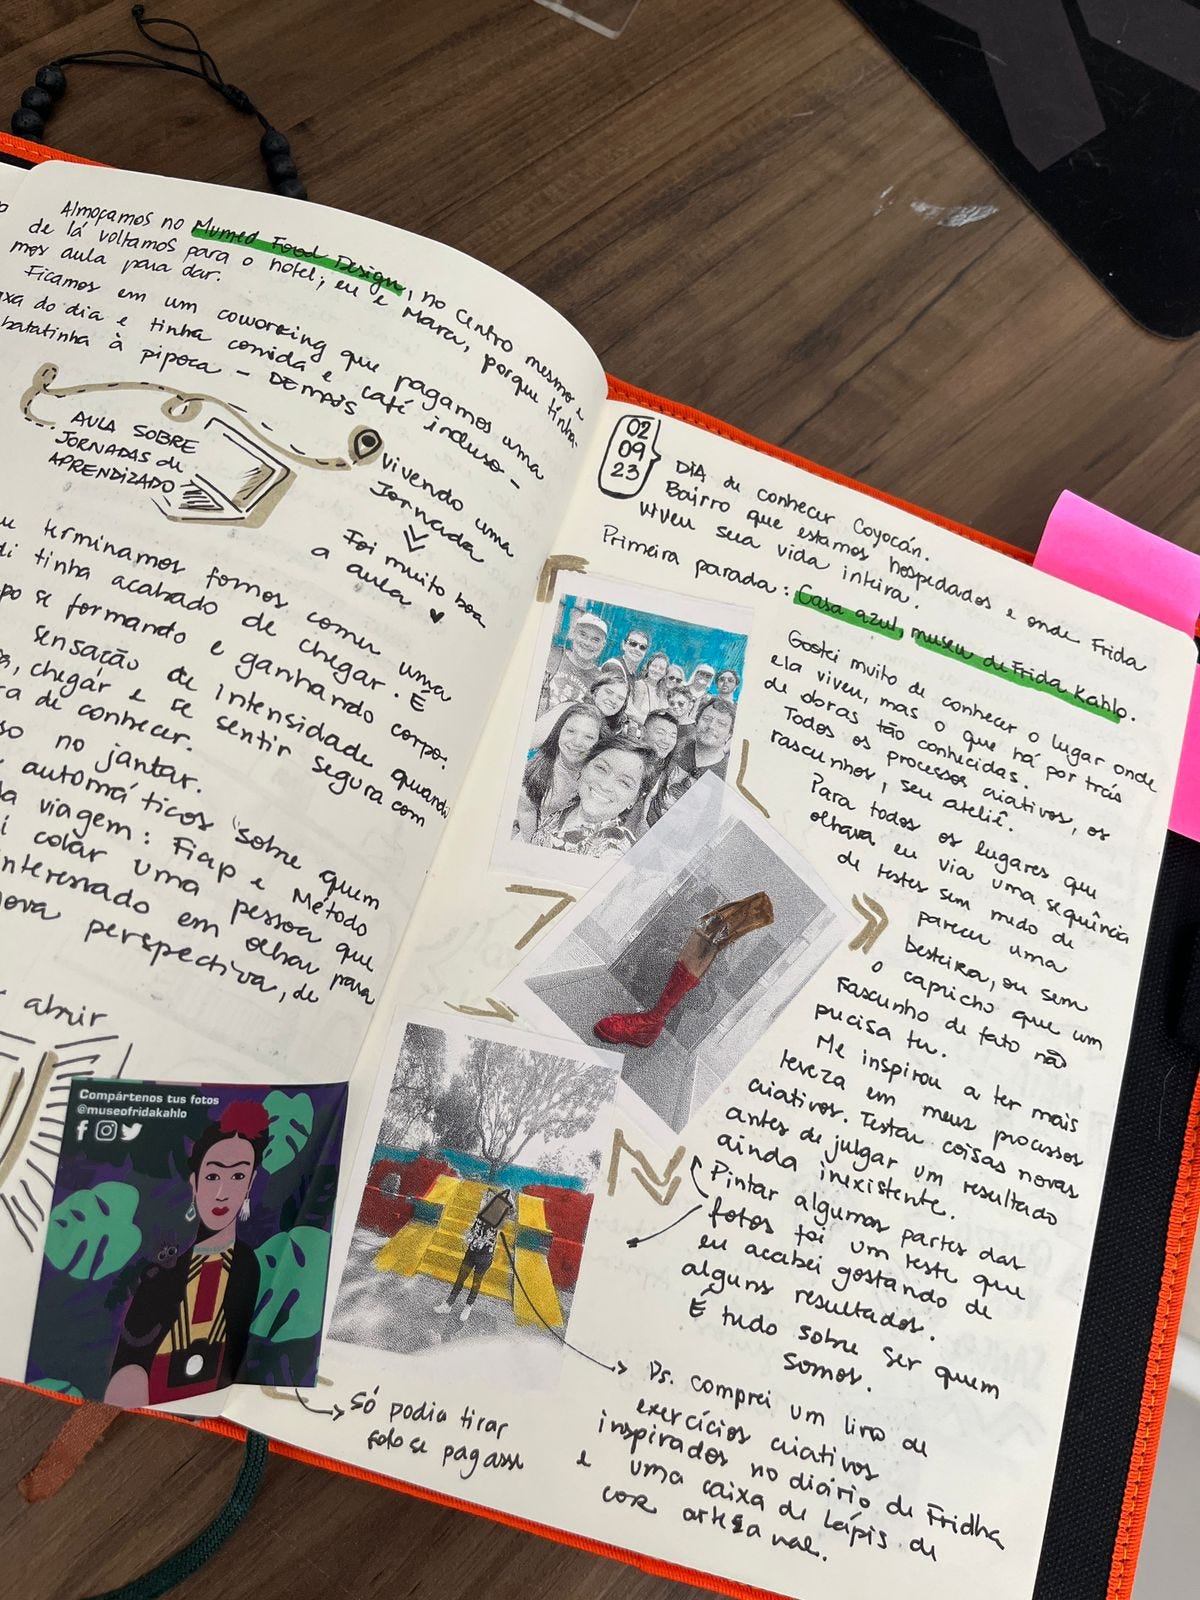 Almoçamos no Mumed Food Design, no Centro mesmo e
de lá voltamos para o hotel; eu e Mara, porque tinha-
mos aula para dar.
Ficamos em um coworking que pagamos uma
do dia e tinha comida e café incluso -
batatinha à pipoca - DEMAIS
AULA SOBRE
JORNADAS de
APRENDIZADO
VIVENDO uma
Jornada
Foi muito boa
a aula
terminamos fomos comer uma
tinha acabado de chegar. É
se formando e ganhando corpo.
sensação de intensidade quando
chegar e se sentir segura com
de conhecer.
no jantar.
automáticos sobre quem
viagem: Fiap e Método
colar uma pessoa que
interessado em olhar para
nova perspectiva, de
abrir
Compártenos tus fotos
@museofridakahlo
02
09
23
DIA de conhecer Coyocán.
Bairro que estamos hospedados e onde Frida
viveu sua vida inteira.
Primeira parada: Casa azul, museu de Frida Kahlo.
Gostei muito de conhecer o lugar onde
ela viveu, mas o que há por trás
de obras tão conhecidas.
Todos os processos criativos, os
rascunhos, seu ateliê.
Para todos os lugares que
olhava eu via uma sequência
de testes sem medo de
parecer uma
besteira, ou sem
o capricho que um
rascunho de fato não
precisa ter.
Me inspirou a ter mais
leveza em meus processos
criativos. Testar coisas novas
antes de julgar um resultado
ainda inexistente.
Pintar algumas partes das
fotos foi um teste que
eu acabei gostando de
alguns resultados.
É tudo sobre ser quem
somos.
Ps. comprei um livro de
exercícios criativos
inspirados no diário de Fridha
e uma caixa de lápis de
cor artesanal.
Só podia tirar
foto se pagasse